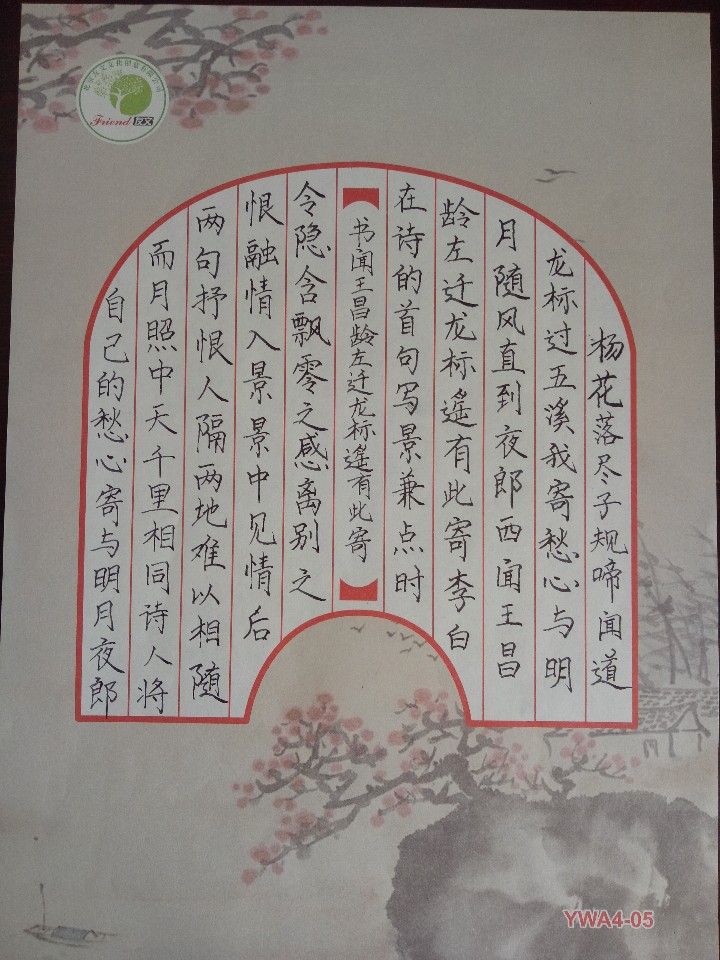 杨花落尽子规啼闻道
龙标过五溪我寄愁心与明
月随风直到夜郎西闻王昌
龄左迁龙标遥有此寄李白
在诗的首句写景兼点时
书闻王昌龄左迁龙标遥有此寄
令隐含飘零之感离别之
恨融情入景景中见情后
两句抒恨人隔两地难以相随
而月照中天千里相同诗人将
自己的愁心寄与明月夜郎
Friend 友文
YWA4-05